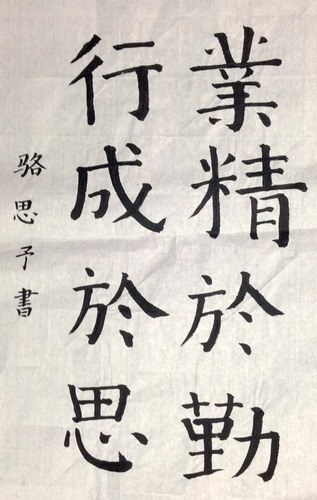 業精於勤
行成於思
骆思予書